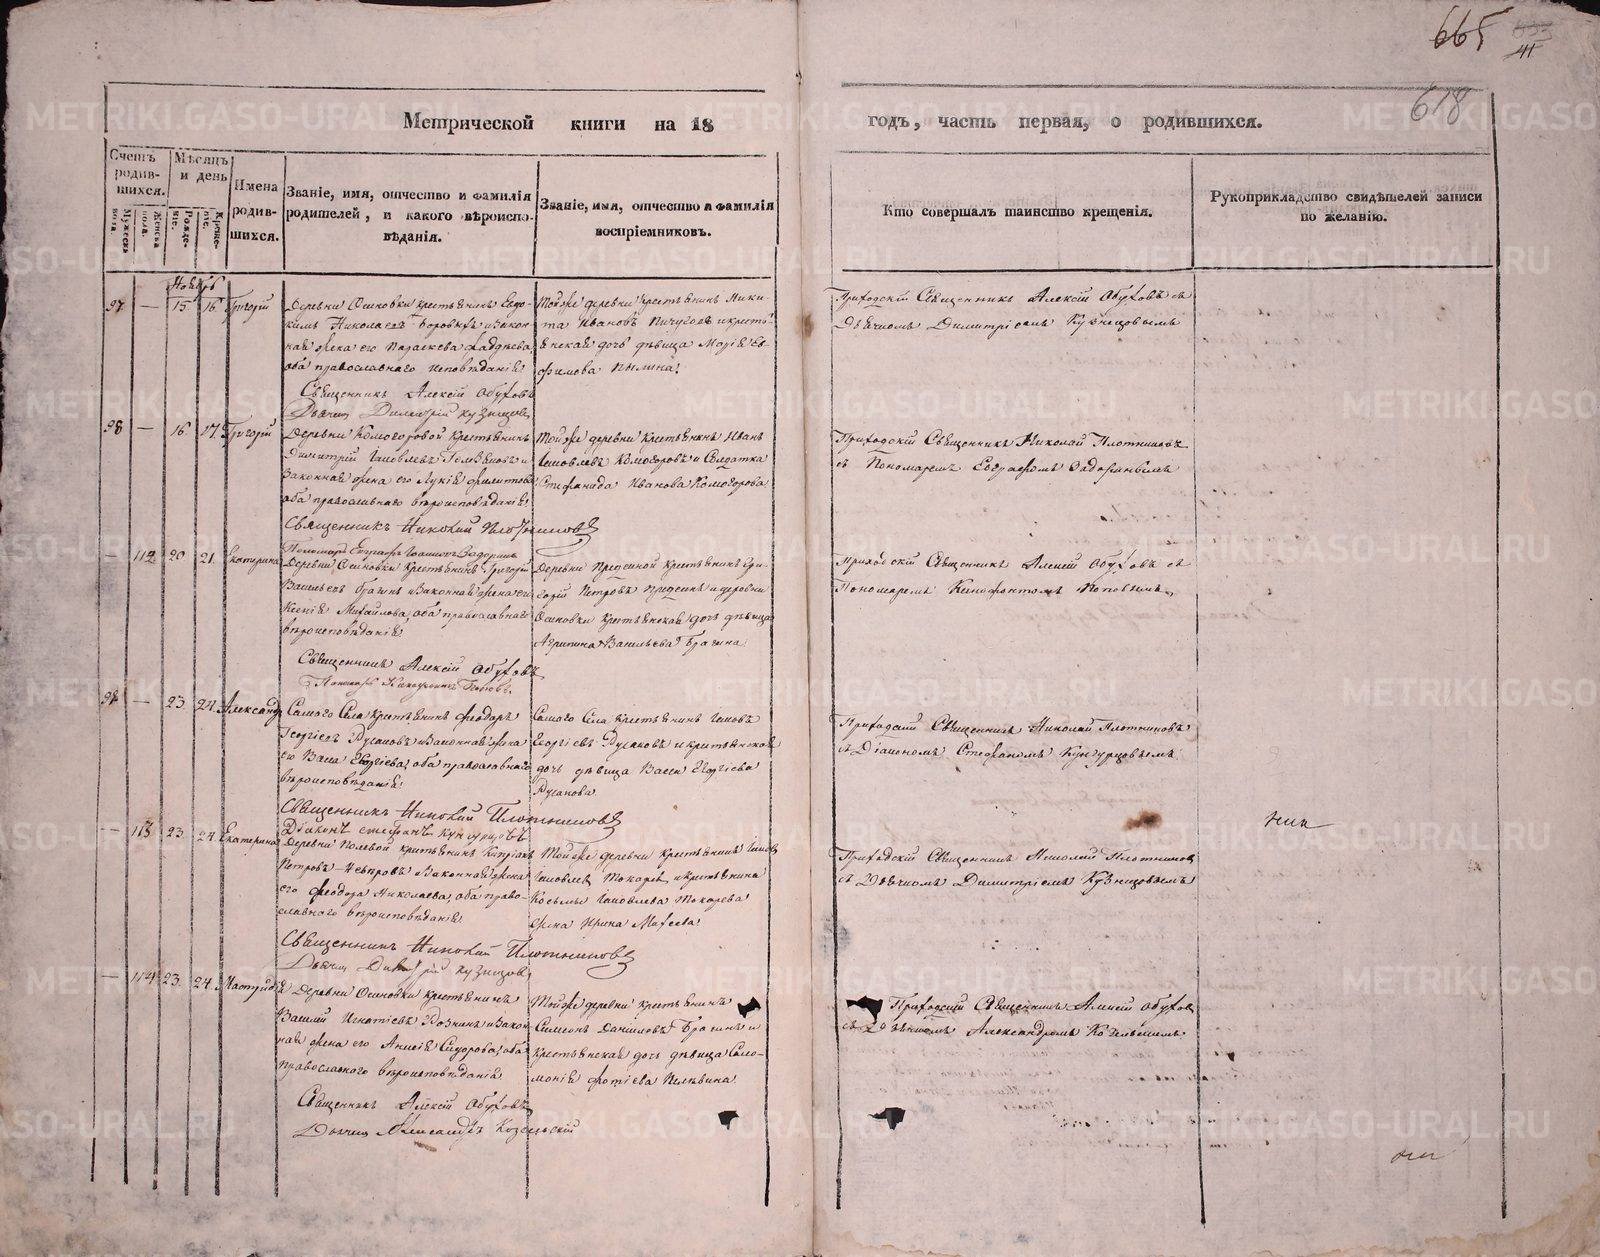 665
41
618
Метрической книги на 18
годъ, часть первая, о родившихся.
Счетъ родив-
шихся.
Мужеска пола.
Женска пола.
Мѣсяцъ
и день
Рожде-
ніе.
Креще-
ніе.
Имена
родив-
шихся.
Званіе, имя, отчество и фамилія
родителей, и какого вѣроиспо-
вѣданія.
Званіе, имя, отчество и фамилія
воспріемниковъ.
Кто совершалъ таинство крещенія.
Рукоприкладство свидѣтелей записи
по желанію.
Ноябрь
97 — 15 16 Григорій
Деревни Осиновки крестьянинъ Евдо-
кимъ Николаевъ и закон-
ная жена его Параскева Фаддѣева,
оба православнаго исповѣданія
Священникъ Алексій Обуховъ
Дьячекъ Димитрій Кузнецовъ
Той же деревни крестьянинъ Ники-
та Ивановъ Пичуговъ и кресть-
янская дочь дѣвица Марія Ев-
фимова
Приходскій Священникъ Алексій Обуховъ съ
Дьячкомъ Димитріемъ Кузнецовымъ
98 — 16 17 Григорій
Деревни Комогоровой крестьянинъ
Димитрій Іаковлевъ и
законная жена его Лукія Филипова
оба православнаго вѣроисповѣданія
Священникъ Николай Плотниковъ
Той же деревни крестьянинъ Иванъ
Іаковлевъ Комогоровъ и Солдатка
Стефанида Иванова Комогорова
Приходскій Священникъ Николай Плотниковъ
съ Пономаремъ Евграфомъ
— 112 20 21 Екатерина
Деревни Осиновки крестьянинъ Григорій
Васильевъ Брагинъ и законная жена его
Ксенія Михайлова, оба православнаго
вѣроисповѣданія
Священникъ Алексій Обуховъ
Пономарь Ксенофонтъ Поповъ
Деревни крестьянинъ Гри-
горій Петровъ и деревни
Осиновки крестьянская дочь дѣвица
Агрипина Васильева Брагина
Приходскій Священникъ Алексій Обуховъ съ
Пономаремъ Ксенофонтомъ Поповымъ
99 — 23 24 Александръ
Самого Села крестьянинъ Феодоръ
Георгіевъ Русаковъ и законная жена
его Васса Георгіева, оба православнаго
вѣроисповѣданія
Священникъ Николай Плотниковъ
Діаконъ Стефанъ Кунгурцовъ
Самого Села крестьянинъ Іаковъ
Георгіевъ Русаковъ и крестьянская
дочь дѣвица Васса Георгіева
Русакова
Приходскій Священникъ Николай Плотниковъ
съ Діакономъ Стефаномъ Кунгурцовымъ
— 113 23 24 Екатерина
Деревни Полевой крестьянинъ Кипріанъ
Петровъ и законная жена
его Феодора Николаева, оба право-
славнаго вѣроисповѣданія
Священникъ Николай Плотниковъ
Дьячекъ Димитрій Кузнецовъ
Той же деревни крестьянинъ Іаковъ
Іаковлевъ Токаревъ и крестьянина
Косьмы Іаковлева Токарева
жена Ирина Матѳеева
Приходскій Священникъ Николай Плотниковъ
съ Дьячкомъ Димитріемъ Кузнецовымъ
— 114 23 24
Деревни Осиновки крестьянинъ
Василій Игнатіевъ и закон-
ная жена его Анисія Сидорова, оба
православнаго вѣроисповѣданія
Священникъ Алексій Обуховъ
Дьячекъ Александръ Козельскій
Той же деревни крестьянинъ
Симеонъ Даниловъ Брагинъ и
крестьянская дочь дѣвица Соло-
монія Фотіева
Приходскій Священникъ Алексій Обуховъ
съ Дьячкомъ Александромъ Козельскимъ
METRIKI.GASO-URAL.RU